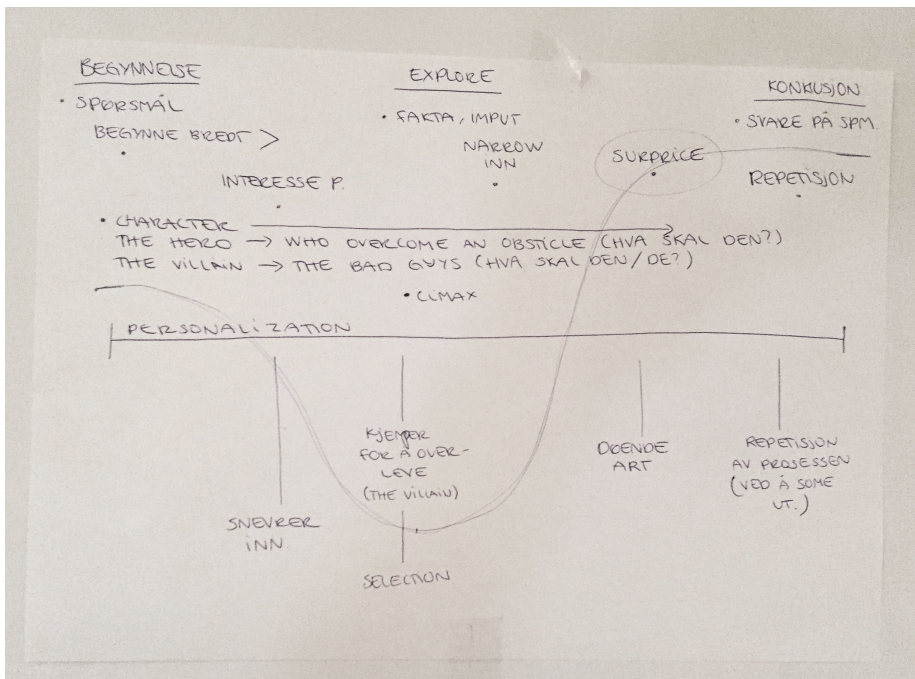 BEGYNNELSE
• SPØRSMÅL
BEGYNNE BREDT >
INTERESSE P.
EXPLORE
• FAKTA, IMPUT
NARROW
INN
SURPRICE
KONKLUSJON
• SVARE PÅ SPM.
REPETISJON
• CHARACTER
THE HERO → WHO OVERCOME AN OBSTICLE (HVA SKAL DEN?)
THE VILLAIN → THE BAD GUYS (HVA SKAL DEN/DE?)
• CLIMAX
PERSONALIZATION
SNEVRER
INN
KJEMPER
FOR Å OVER-
LEVE
(THE VILLAIN)
SELECTION
DØENDE
ART
REPETISJON
AV PROSESSEN
(VED Å SOME
UT.)